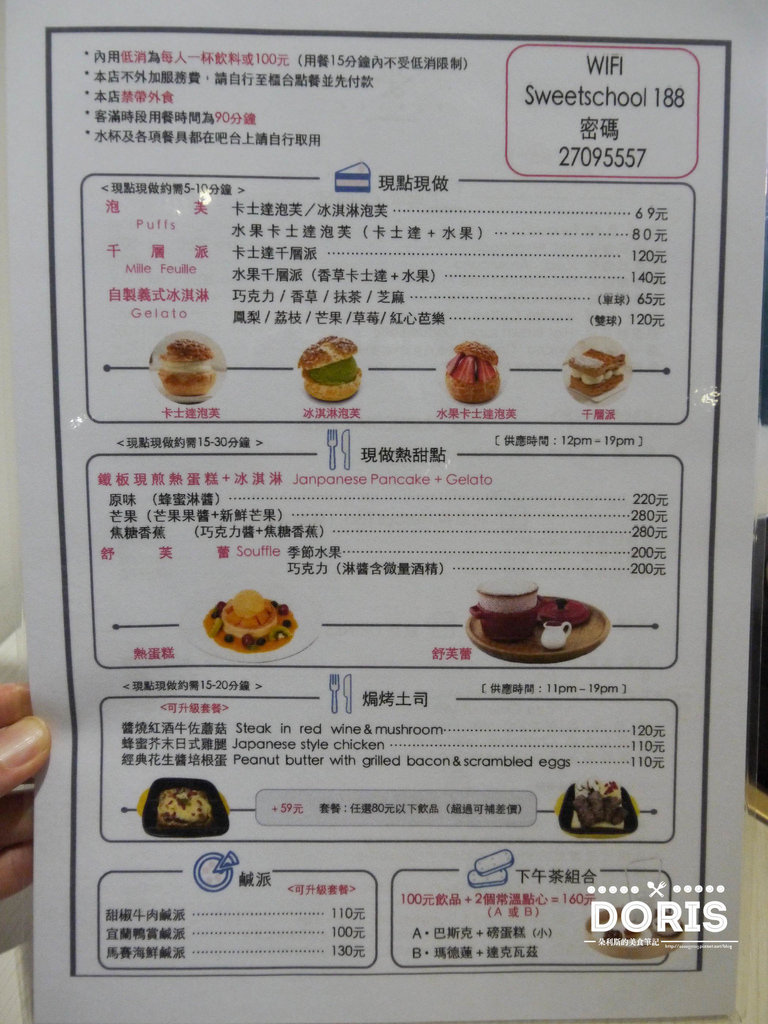 * 內用低消為每人一杯飲料或100元（用餐15分鐘內不受低消限制）
* 本店不外加服務費，請自行至櫃台點餐並先付款
* 本店禁帶外食
* 客滿時段用餐時間為90分鐘
* 水杯及各項餐具都在吧台上請自行取用
WIFI
Sweetschool 188
密碼
27095557
＜現點現做約需5-10分鐘＞
現點現做
泡芙 卡士達泡芙／冰淇淋泡芙 69元
Puffs 水果卡士達泡芙（卡士達+水果） 80元
千層派 卡士達千層派 120元
Mille Feuille 水果千層派（香草卡士達+水果） 140元
自製義式冰淇淋 巧克力/香草/抹茶/芝麻 （單球）65元
Gelato 鳳梨/荔枝/芒果/草莓/紅心芭樂 （雙球）120元
卡士達泡芙 冰淇淋泡芙 水果卡士達泡芙 千層派
＜現點現做約需15-30分鐘＞ 現做熱甜點 〔供應時間：12pm－19pm〕
鐵板現煎熱蛋糕+冰淇淋 Janpanese Pancake + Gelato
原味 （蜂蜜淋醬） 220元
芒果（芒果果醬+新鮮芒果） 280元
焦糖香蕉 （巧克力醬+焦糖香蕉） 280元
舒芙蕾 Souffle 季節水果 200元
巧克力（淋醬含微量酒精） 200元
熱蛋糕 舒芙蕾
＜現點現做約需15-20分鐘＞ 焗烤土司 〔供應時間：11pm－19pm〕
<可升級套餐>
醬燒紅酒牛佐蘑菇 Steak in red wine & mushroom 120元
蜂蜜芥末日式雞腿 Japanese style chicken 110元
經典花生醬培根蛋 Peanut butter with grilled bacon & scrambled eggs 110元
+59元 套餐：任選80元以下飲品（超過可補差價）
鹹派
<可升級套餐>
甜椒牛肉鹹派 110元
宜蘭鴨賞鹹派 100元
馬賽海鮮鹹派 130元
下午茶組合
100元飲品+2個常溫點心=160元
（A 或 B）
A・巴斯克+磅蛋糕（小）
B・瑪德蓮+達克瓦茲
DORIS
朵利斯的美食筆記